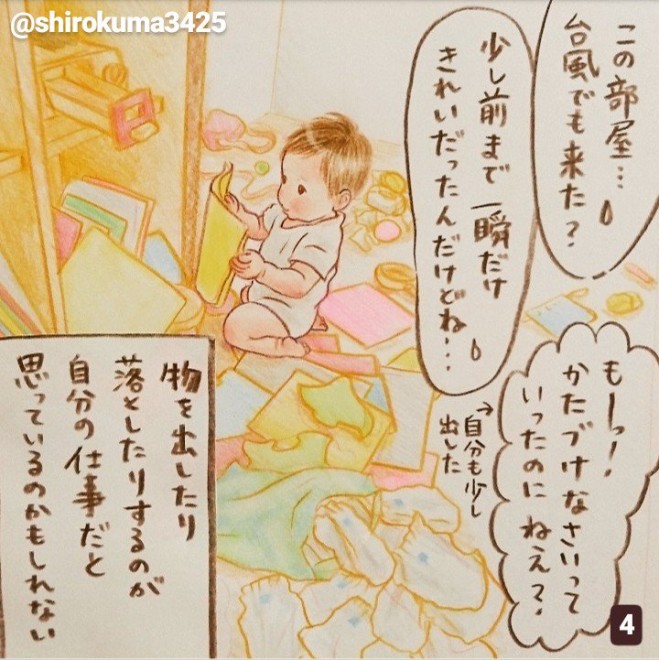 @shirokuma3425
この部屋…
台風でも来た？
少し前まで一瞬だけ
きれいだったんだけどね…
もーっ！
かたづけなさいって
いったのにねえ？
→自分も少し
出した
物を出したり
落としたりするのが
自分の仕事だと
思っているのかもしれない
4